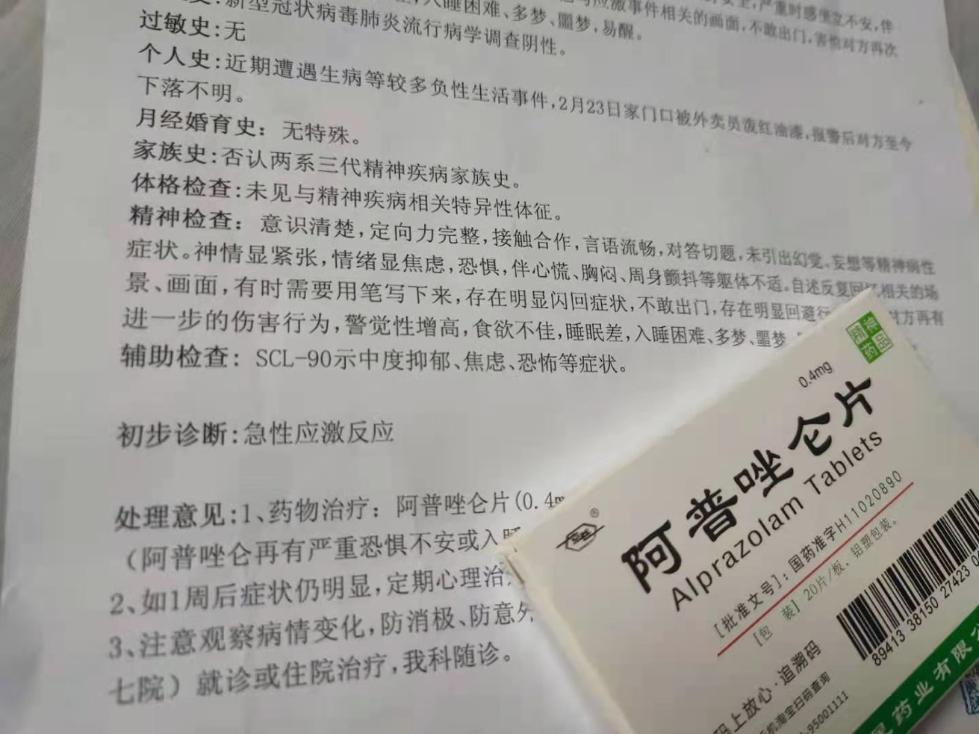 应激事件相关的画面,不敢出门,害怕对方再次
入睡困难、多梦、噩梦,易醒。
新型冠状病毒肺炎流行病学调查阴性。
过敏史:无
个人史:近期遭遇生病等较多负性生活事件,2月23日家门口被外卖员泼红油漆,报警后对方至今
下落不明。
月经婚育史:无特殊。
家族史:否认两系三代精神疾病家族史。
体格检查:未见与精神疾病相关特异性体征。
精神检查:意识清楚,定向力完整,接触合作,言语流畅,对答切题,未引出幻觉、妄想等精神病性
症状。神情显紧张,情绪显焦虑,恐惧,伴心慌、胸闷、周身颤抖等躯体不适。自述反复回忆相关的场
景、画面,有时需要用笔写下来,存在明显闪回症状,不敢出门,存在明显回避行 对方再有
进一步的伤害行为,警觉性增高,食欲不佳,睡眠差,入睡困难、多梦、噩梦
辅助检查: SCL-90示中度抑郁、焦虑、恐怖等症状。
初步诊断:急性应激反应
处理意见:1、药物治疗: 阿普唑仑片(0.4m
(阿普唑仑再有严重恐惧不安或入睡
2、如1周后症状仍明显,定期心理治
3、注意观察病情变化,防消极、防意外
七院)就诊或住院治疗,我科随诊。
精神
药品
0.4mg
阿普唑仑片
Alprazolam Tablets
[批准文号]:国药准字H11020890
[包 装]20片/板、铝塑包装。
码上放心·追溯码
机淘宝扫码查询
-95001111
89413 38150 27423 0
药业有限